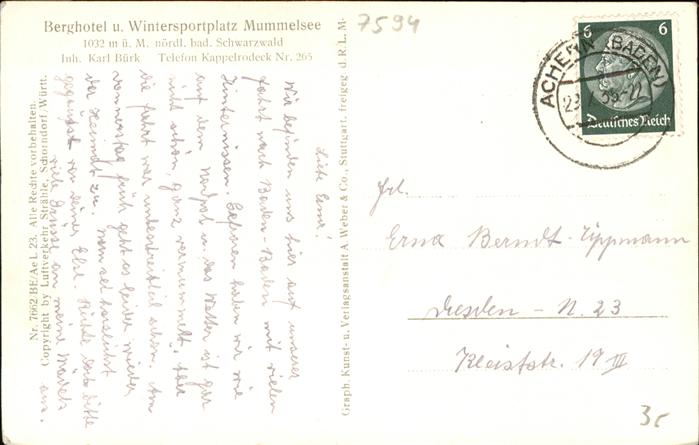 Berghotel u. Wintersportplatz Mummelsee
1032 m ü. M. nördl. bad. Schwarzwald
Inh. Karl Bürk Telefon Kappelrodeck Nr. 265
7594
Nr. 7662 BE/Ae L 23. Alle Rechte vorbehalten.
Copyright by Luftverkehr Strähle, Schorndorf/Württ.
Liebe Erna!
Wir befinden uns hier auf unserer
Fahrt nach Baden-Baden mit vielen
Hinternissen. Besonen haben wir wie
auf dem Nordpol u. das Wetter ist gar
nicht schön, ganz vermummelt, aber
die Fahrt war unbestreitbar schön. Am
Donnerstag früh geht es leider wieder
der Heimat zu. Nun sei herzlichst
gegrüsst von deiner Else. Richte bitte
viele Grüsse an meine Mädels
aus.
Graph. Kunst- u. Verlagsanstalt A. Weber & Co., Stuttgart, freigeg. d. R. L. M.
ACHERN (BADEN)
6 6
Deutsches Reich
Frl.
Erna Berndt-Lippmann
Dresden - N. 23
Kleiststr. 19 III
3c